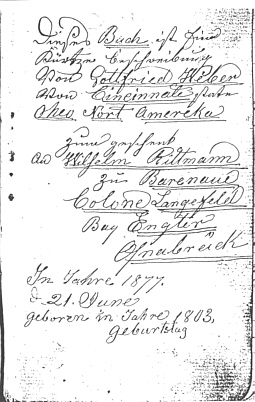 Dieses Buch ist Eine
Kürtze beschreibung
Von Gottfried Höber
Von Cincinnate state
Oheo Nort Amereka
zum geschenk
An Wilhelm Rottmann
zu Barenaue
Colone Langefeld
Bay Engter
Osnabrück
In Jahre 1877.
d 21. June
geboren in Jahre 1803,
geburtstag